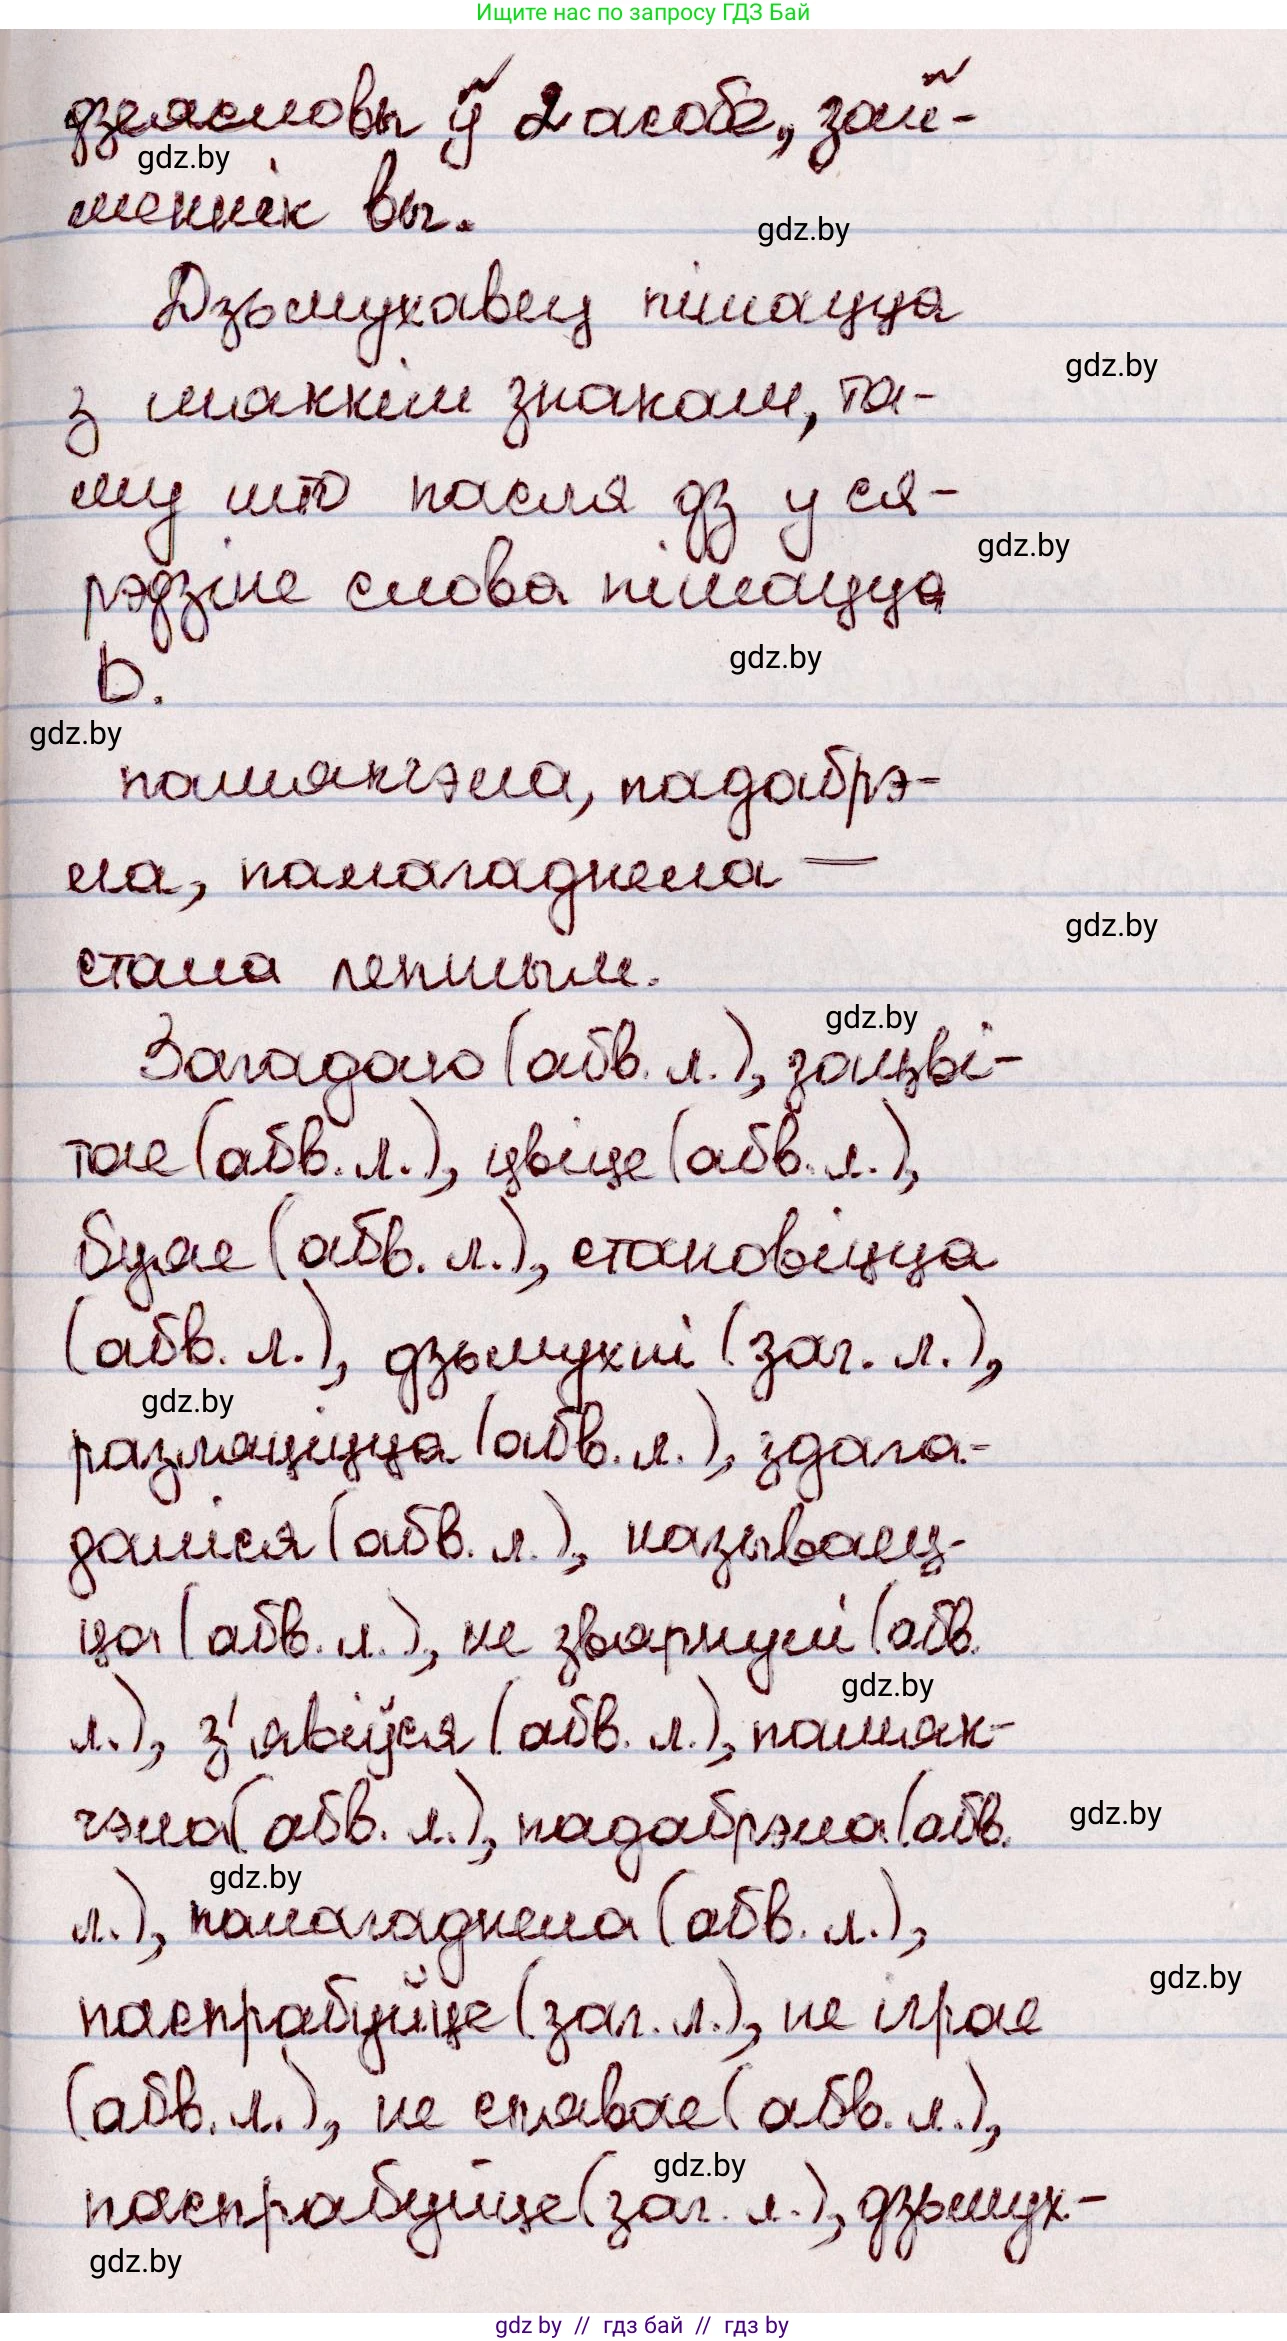 Ищите нас по запросу ГДЗ Бай
дзеясловы ў 2 асобе, зай-
gdz.by
меннік вы.
gdz.by
Дзьмухавец пішацца
gdz.by
з мяккім знакам, та-
му што пасля дз у ся-
gdz.by
рэдзіне слова пішацца
ь.
gdz.by
gdz.by
памякчэла, падабрэ-
ла, палагаднела —
gdz.by
стала лепшым.
gdz.by
Загадаю (абв. л.), зацві-
тае (абв. л.), цвіце (абв. л.),
буяе (абв. л.), становіцца
(абв. л.), дзьмухні (заг. л.),
gdz.by
разляціцца (абв. л.), здага-
даліся (абв. л.), называец-
ца (абв. л.), не звярнулі (абв.
gdz.by
л.), з'явіўся (абв. л.), памяк-
чэла (абв. л.), падабрэла (абв.
gdz.by
gdz.by
л.), палагаднела (абв. л.),
gdz.by
паспрабуйце (заг. л.), не іграе
(абв. л.), не спявае (абв. л.),
gdz.by
паспрабуйце (заг. л.), дзьмух-
gdz.by
gdz by // гдз бай // гдз by